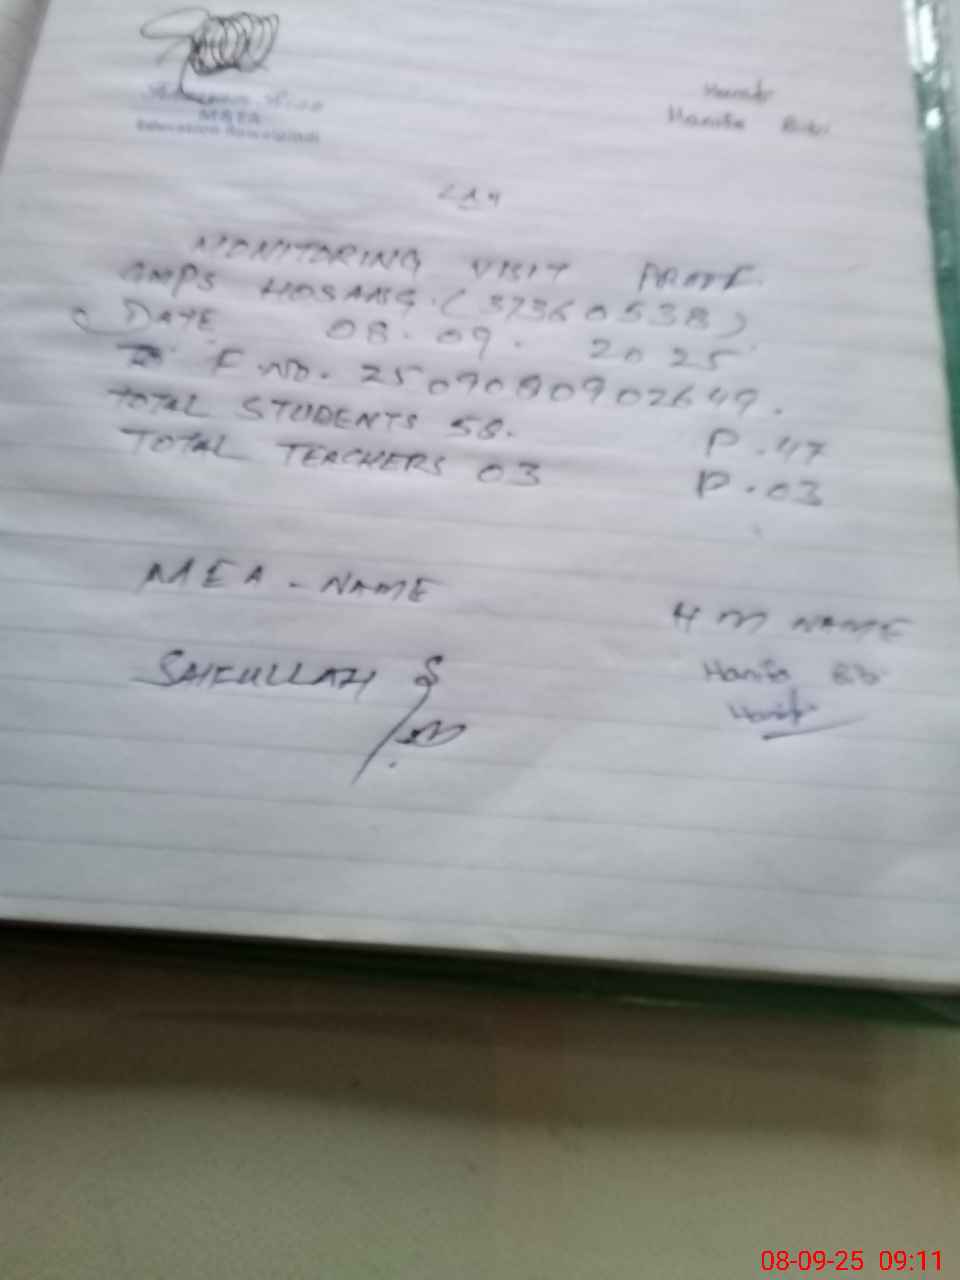 Hanifa Bibi
MONITORING VISIT PROOF.
GMPS HOSANG. (37360538)
DATE 08.09.2025
F. NO. 2509080902649.
TOTAL STUDENTS 58. P.47
TOTAL TEACHERS 03 P.03
MEA - NAME
HM NAME
SAIFULLAH
Hanifa Bibi
08-09-25 09:11